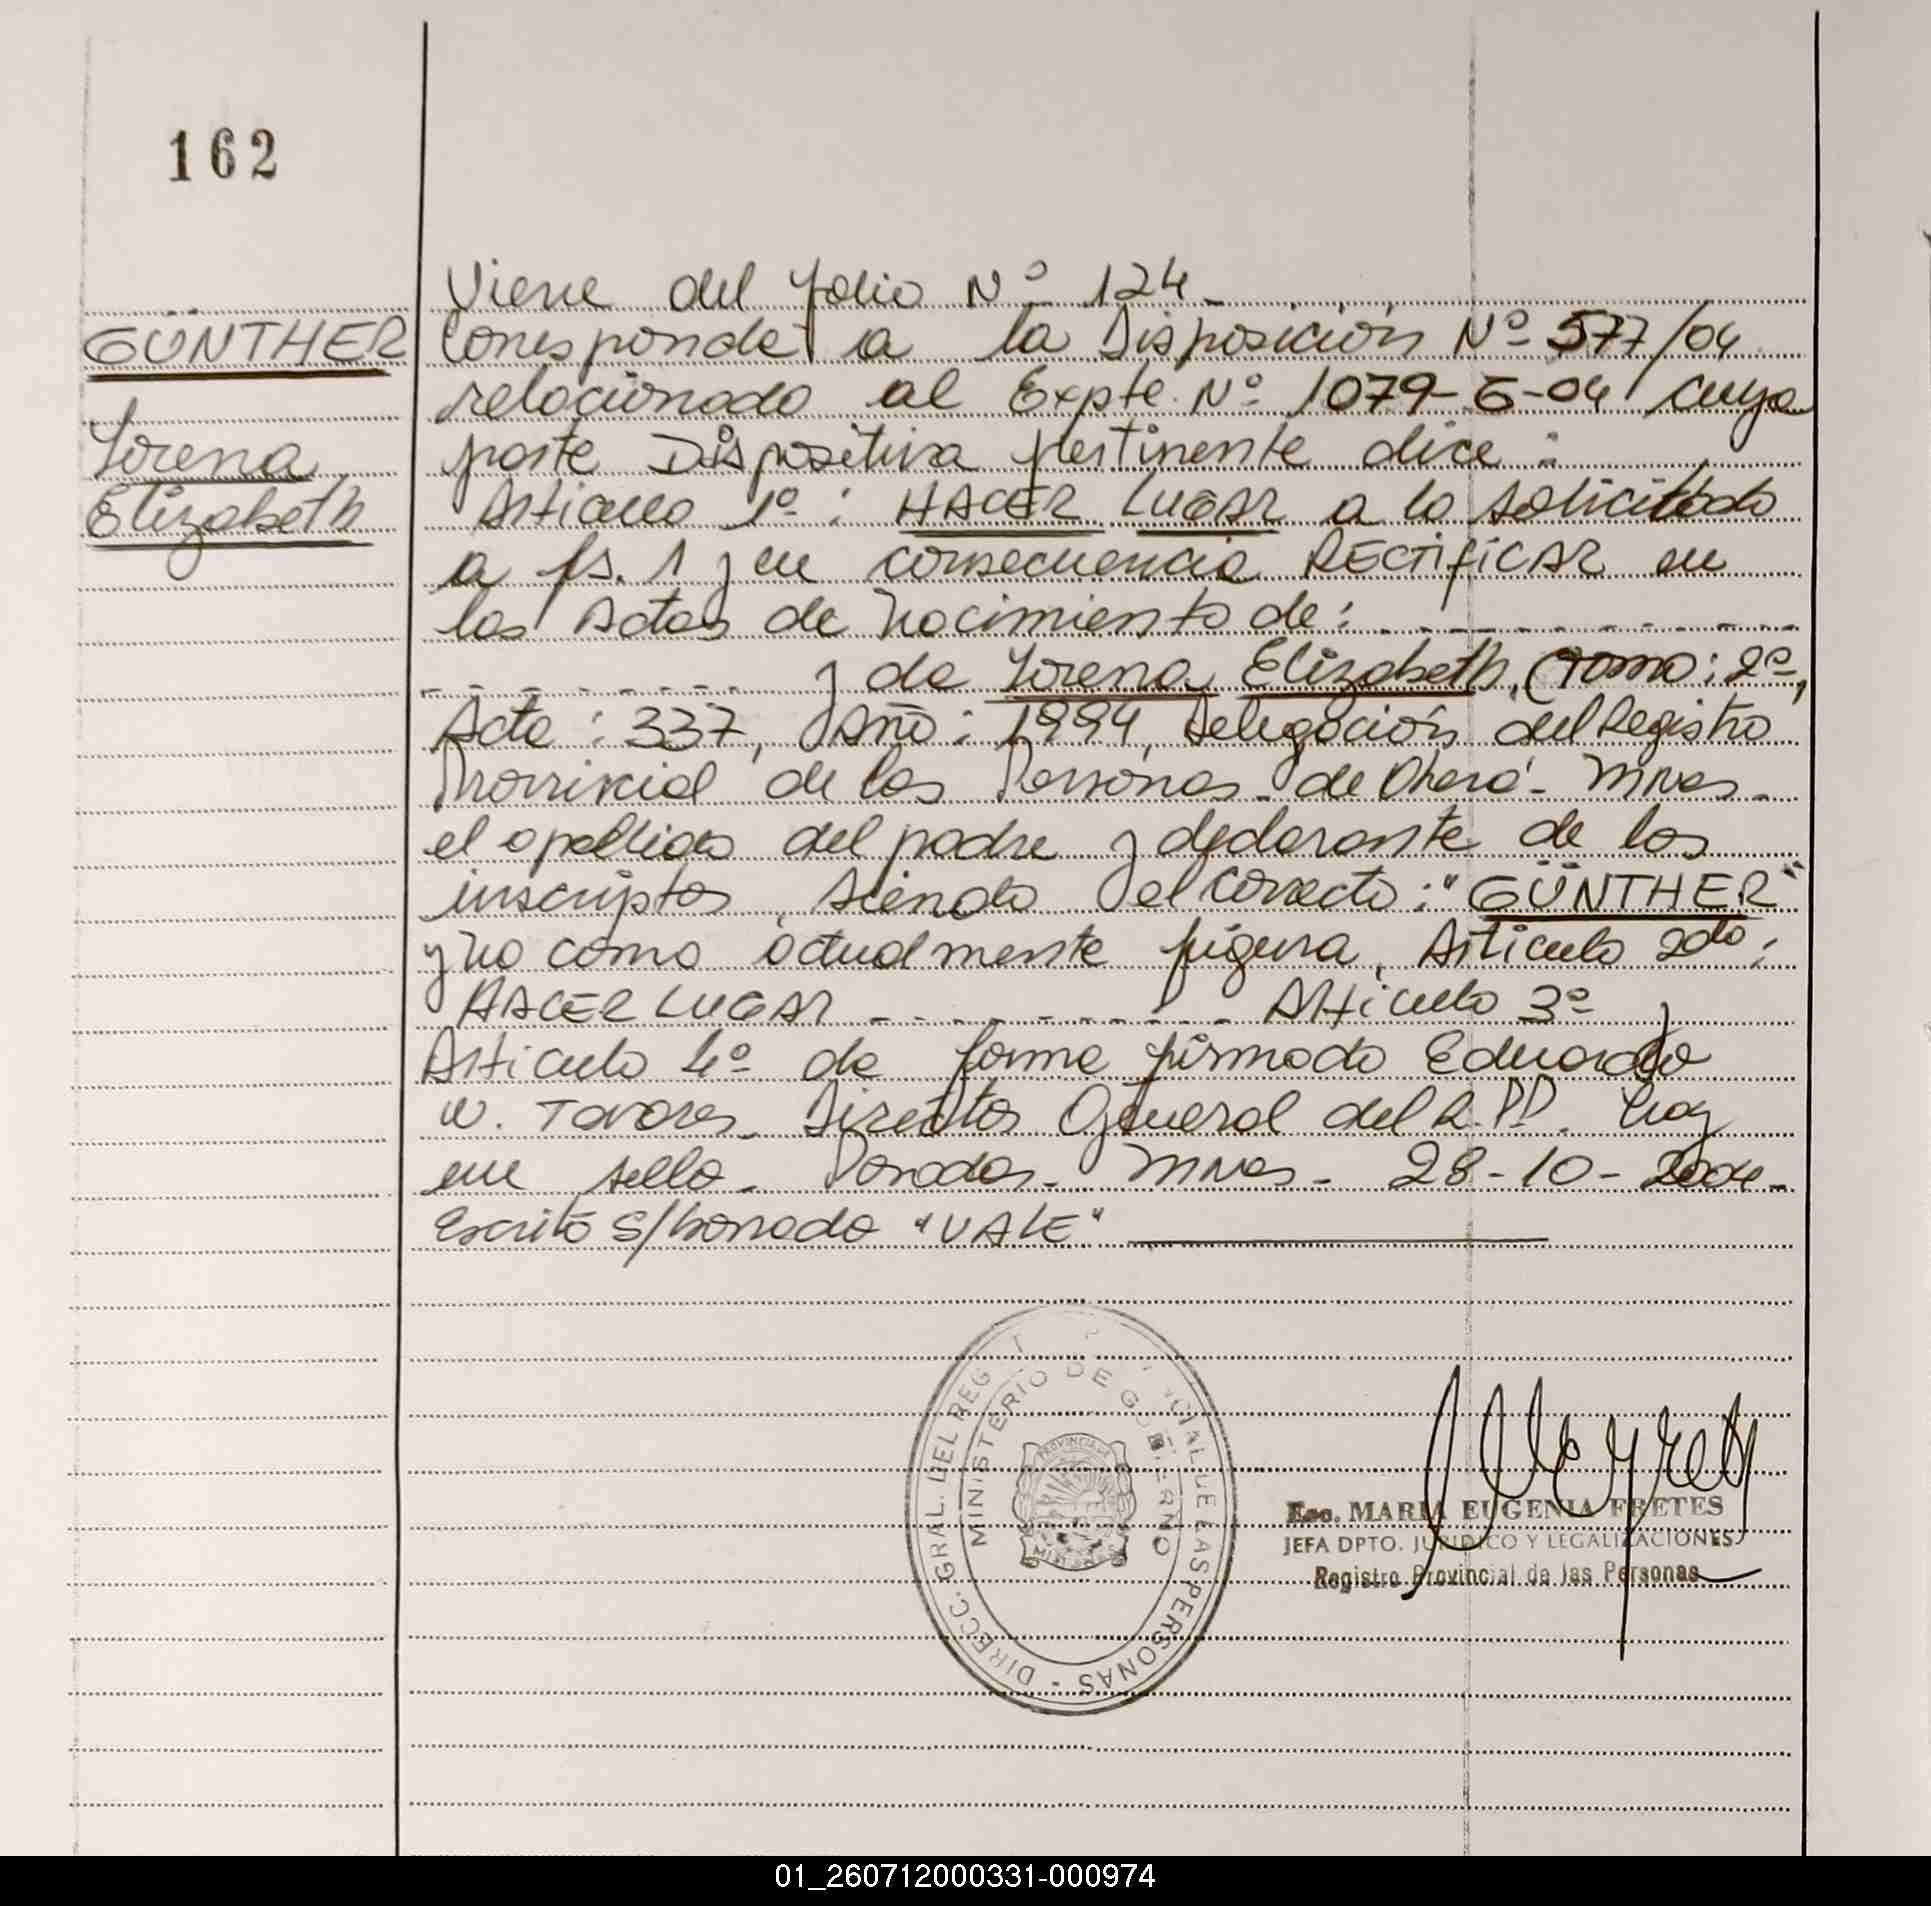 162
GÜNTHER
Lorena
Elizabeth
Viene del folio Nº 124-
Corresponde a la Disposición Nº 577/04
relacionado al Expte. Nº 1079-G-04 cuya
parte Dispositiva pertinente dice:
Artículo 1º: HACER LUGAR a lo solicitado
a fs. 1 y en consecuencia RECTIFICAR en
las Actas de Nacimiento de: - - - - - - - -
- - - - - - - - y de Lorena Elizabeth, (Tomo: 2º,
Acta: 337, Año: 1994, Delegación del Registro
Provincial de las Personas - de Oberá - Mnes -
el apellido del padre y declarante de los
inscriptos, siendo el correcto: "GÜNTHER"
y no como actualmente figura. Artículo 2do:
HACER LUGAR - - - - - - - - - Artículo 3º y
Artículo 4º de forma firmado Eduardo
W. Tavares - Director General del R.P.P. Hay
un sello - Posadas - Mnes - 28-10-2004-
Escrito S/borrado "VALE"
DIRECC. GRAL. DEL REG LAS PERSONAS -
MINISTERIO DE GOBIERNO
PROVINCIA DE
MISIONES
Esc. MARIA EUGENIA FRETES
JEFA DPTO. JURIDICO Y LEGALIZACIONES
Registro Provincial de las Personas
01_260712000331-000974